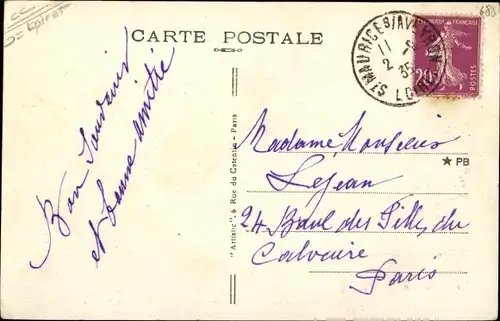 Loiret
688
CARTE POSTALE
St MAURICE S/AVEYRON
11
2 - 35
LOIRET
20c
POSTES
Bon Souvenir
et bonne amitié
"Artistic" 6 Rue du Cotentin - Paris
★ PB
Madame Monsieur
Lejean
24 Boul des Filles du
Calvaire
Paris